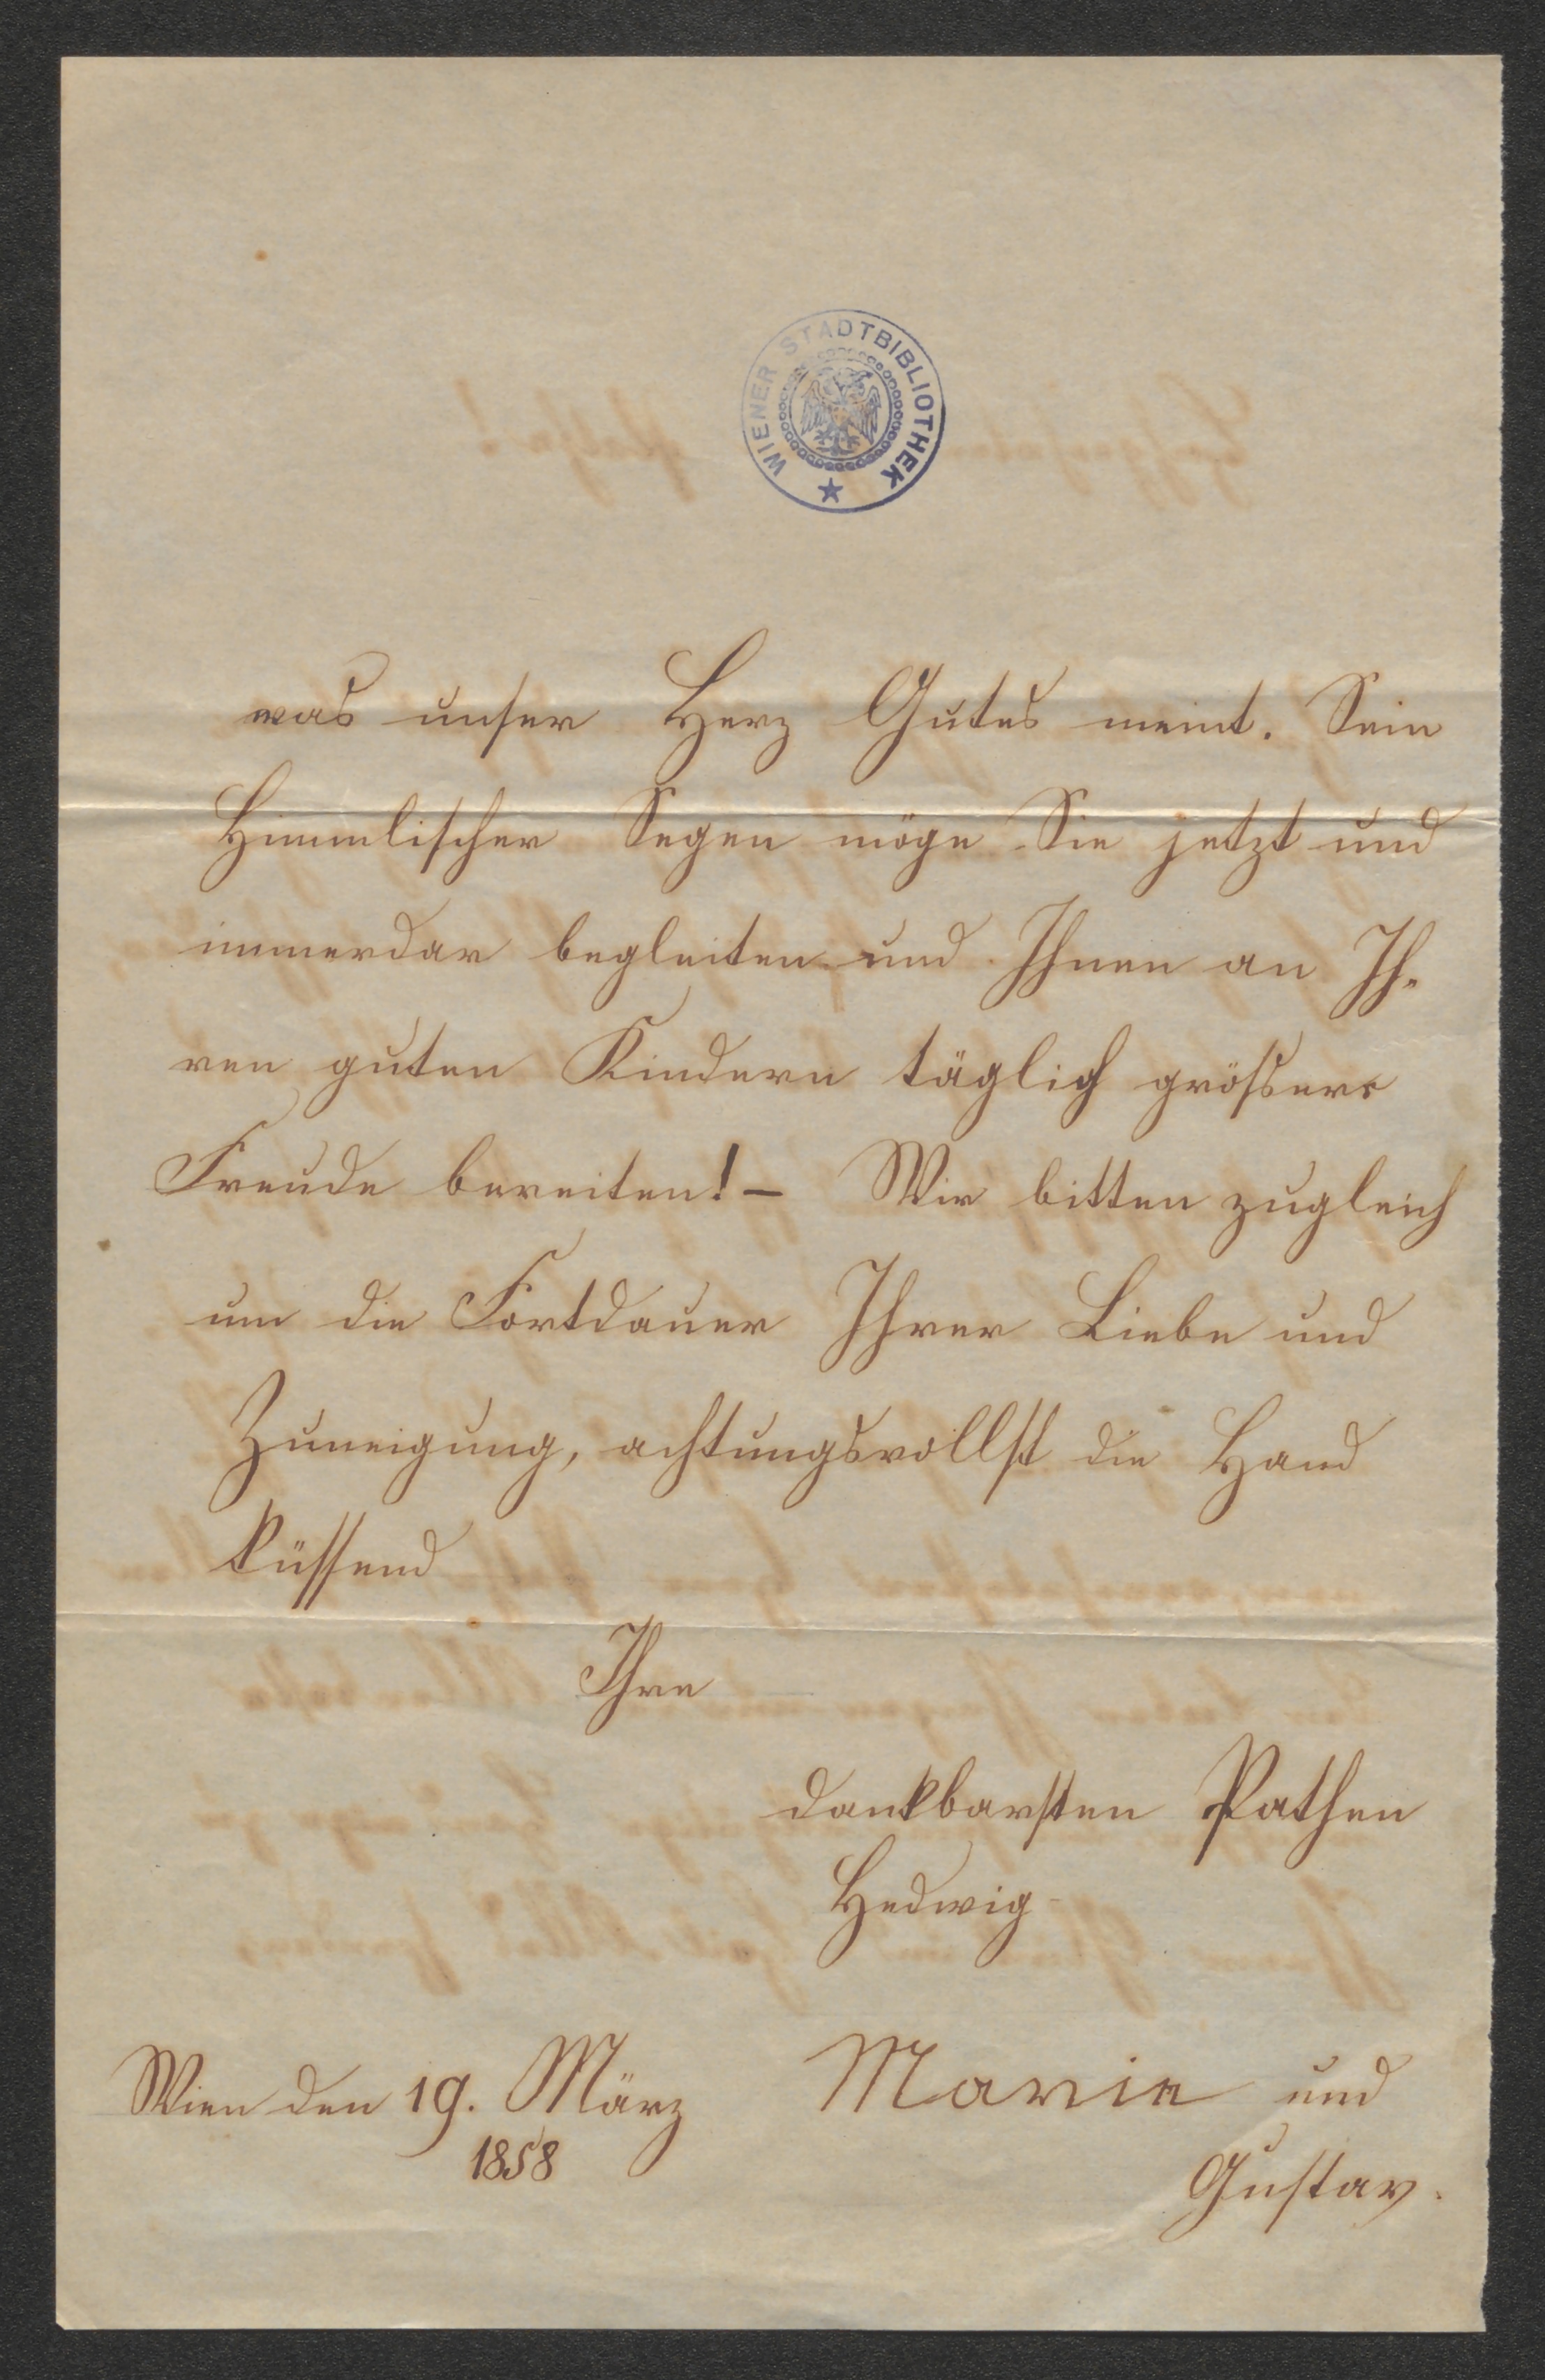 WIENER STADTBIBLIOTHEK
was unser Herz Gutes meint. Sein
Himmlischer Segen möge Sie jetzt und
immerdar begleiten und Ihnen an Ih-
ren guten Kindern täglich grössere
Freude bereiten! – Wir bitten zugleich
um die Fortdauer Ihrer Liebe und
Zuneigung, achtungsvollst die Hand
küssend
Ihre
dankbarsten Pathen
Hedwig
Marie und
Wien den 19. März
1858
Gustav.